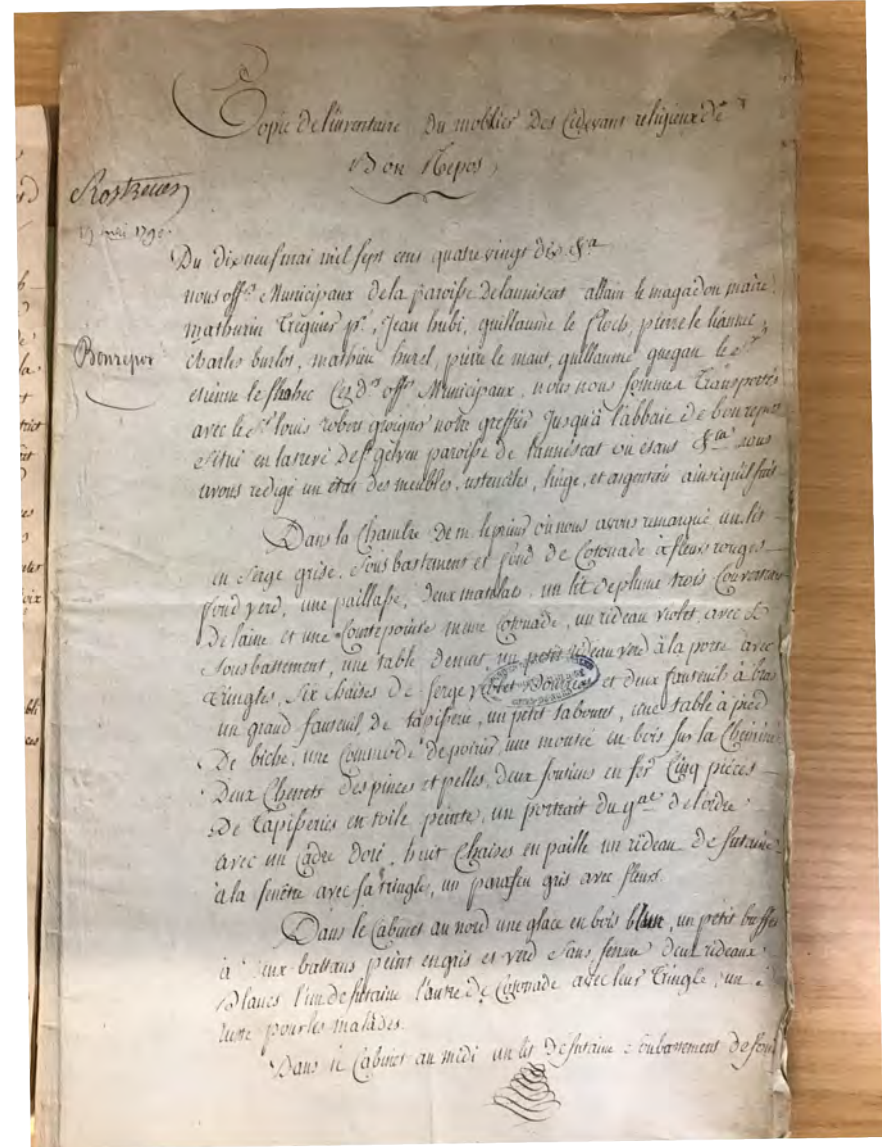 Copie de l'inventaire du mobilier des cidevant religieux de
Bon Repos
Rostrenen
19 mai 1790.
Bonrepos
Du dix neuf mai mil sept cens quatre vingt dix &ra
nous offrs Municipaux de la paroisse de lanniscat allain le magadou maire
mathurin Treguier pr, Jean hubi, guillaume le floch, pierre le
charles burlot, mathieu hurel, pierre le maut, guillaume quegan le
etienne le Municipaux, nous nous sommes Transportés
avec le Sr louis robert notre greffier Jusqu'à l'abbaie de bonrepos
Situé en la treve de st gelven paroisse de lanniscat où etans &ra nous
avons redigé un état des meubles, ustenciles, linge, et argenterie ainsi quil suit
Dans la Chambre de m. le prieur où nous avons remarqué un lit
en Serge grise. Soubastement et fond de Cotonade à fleurs rouges
fond verd, une paillasse, deux matelats, un lit de plume trois Couvertures
De laine et une Courtepointe meme Cotonade, un rideau violet, avec le
Soubastement, une table de nuit, un petit rideau verd à la porte avec
tringles, six chaises de serge et deux fauteuils à bras
un grand fauteuil de tapisserie, un petit tabouret, une table à pied
De biche, une Commode de poirier, une en bois sur la Cheminée
Deux Chenets des pinces et pelles, deux soutiens en fer Cinq pièces
De Tapisseries en toile peinte, un portrait du gal de l'ordre
avec un Cadre doré, huit Chaises en paille un rideau de futaine
à la fenêtre avec sa tringle, un parafeu gris avec fleurs.
Dans le Cabinet au nord une glace en bois blanc, un petit buffet
à deux battans peint en gris et verd Sans deux rideaux
Blancs l'un de futaine l'autre de Cotonade avec leur Tringle, un
pour les malades.
Dans le Cabinet au midi un lit de futaine Soubastement de fond